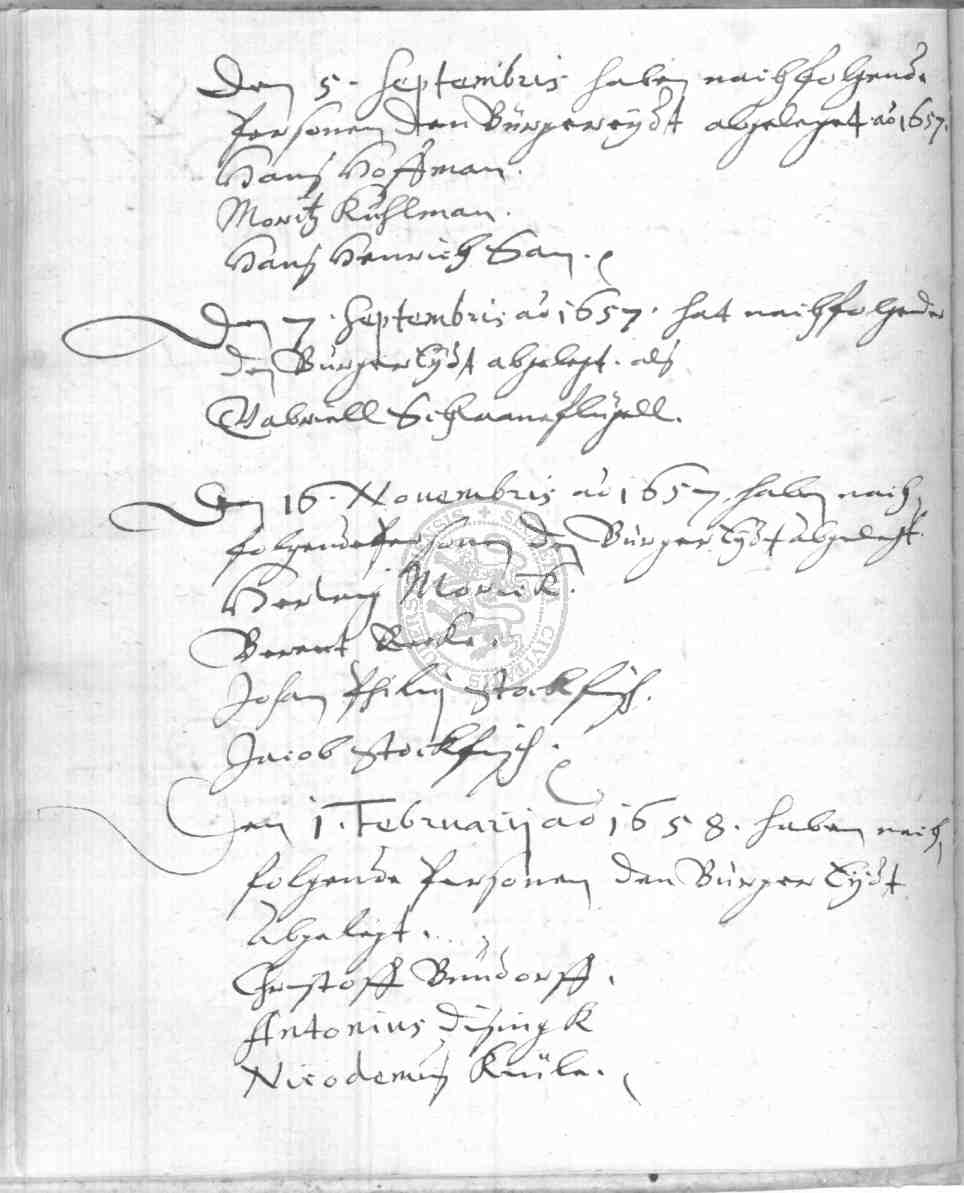 Den 5. Septembris haben nachfolgende
Personen den Bürgereydt abgeleget aö 1657.
Hans Hoffman.
Moritz Kuhlman.
Hans Henrich San.
Den 7. Septembris aö 1657. hat nachfolgender
den Burger Eydt abgelegt. als
Gabriell Schwaneflügell.
Den 16. Nouembris aö 1657. haben nach
folgende Personen den Bürger Eydt abgelegt.
Hertwig
Berent
Johan Philip Stockfisch.
Jacob Stockfisch.
Den 1. Februarij aö 1658. haben nach
folgende Personen den Bürger Eydt
abgelegt.
Christoff
Antonius
Nicodemus Knüle.